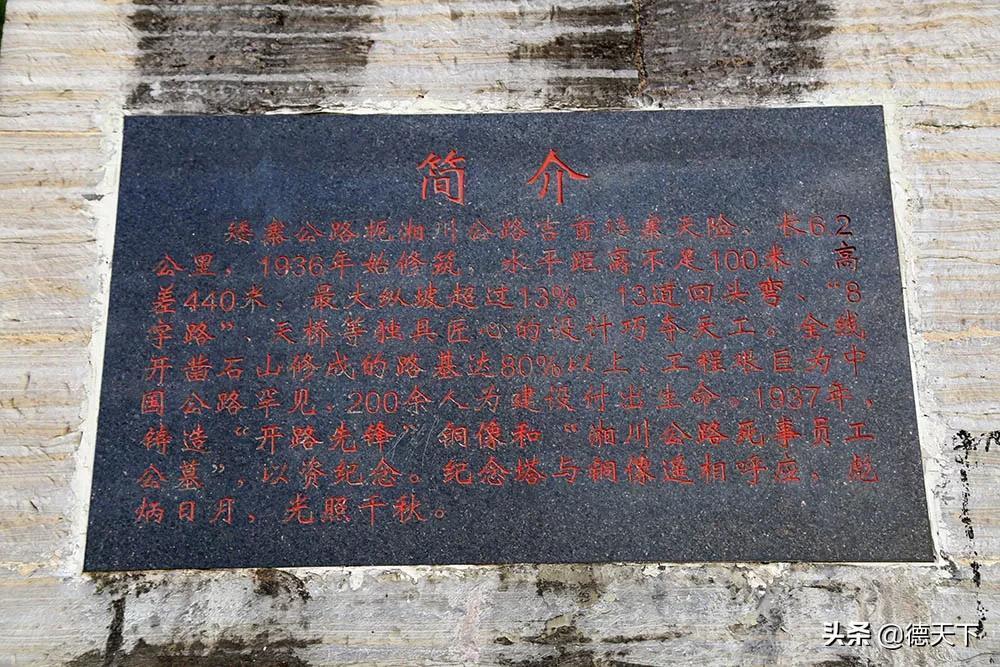 简介
矮寨公路扼湘川公路吉首矮寨天险，长6.2
公里，1936年始修筑，水平距离不足100米、高
差440米，最大纵坡超过13%。13道回头弯、“8
字路”、天桥等独具匠心的设计巧夺天工。全线
开凿石山修成的路基达80%以上，工程艰巨为中
国公路罕见，200余人为建设付出生命。1937年，
铸造“开路先锋”铜像和“湘川公路死事员工
公墓”，以资纪念。纪念塔与铜像遥相呼应，彪
炳日月，光照千秋。
头条 @德天下